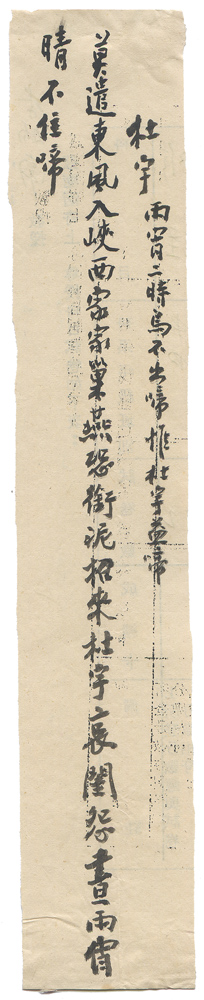 杜宇 雨宵二時鳥不出啼惟杜宇益啼
莫遣東風入峽西家家巢燕恐銜泥招來杜宇哀閨怨晝雨宵
晴不住啼